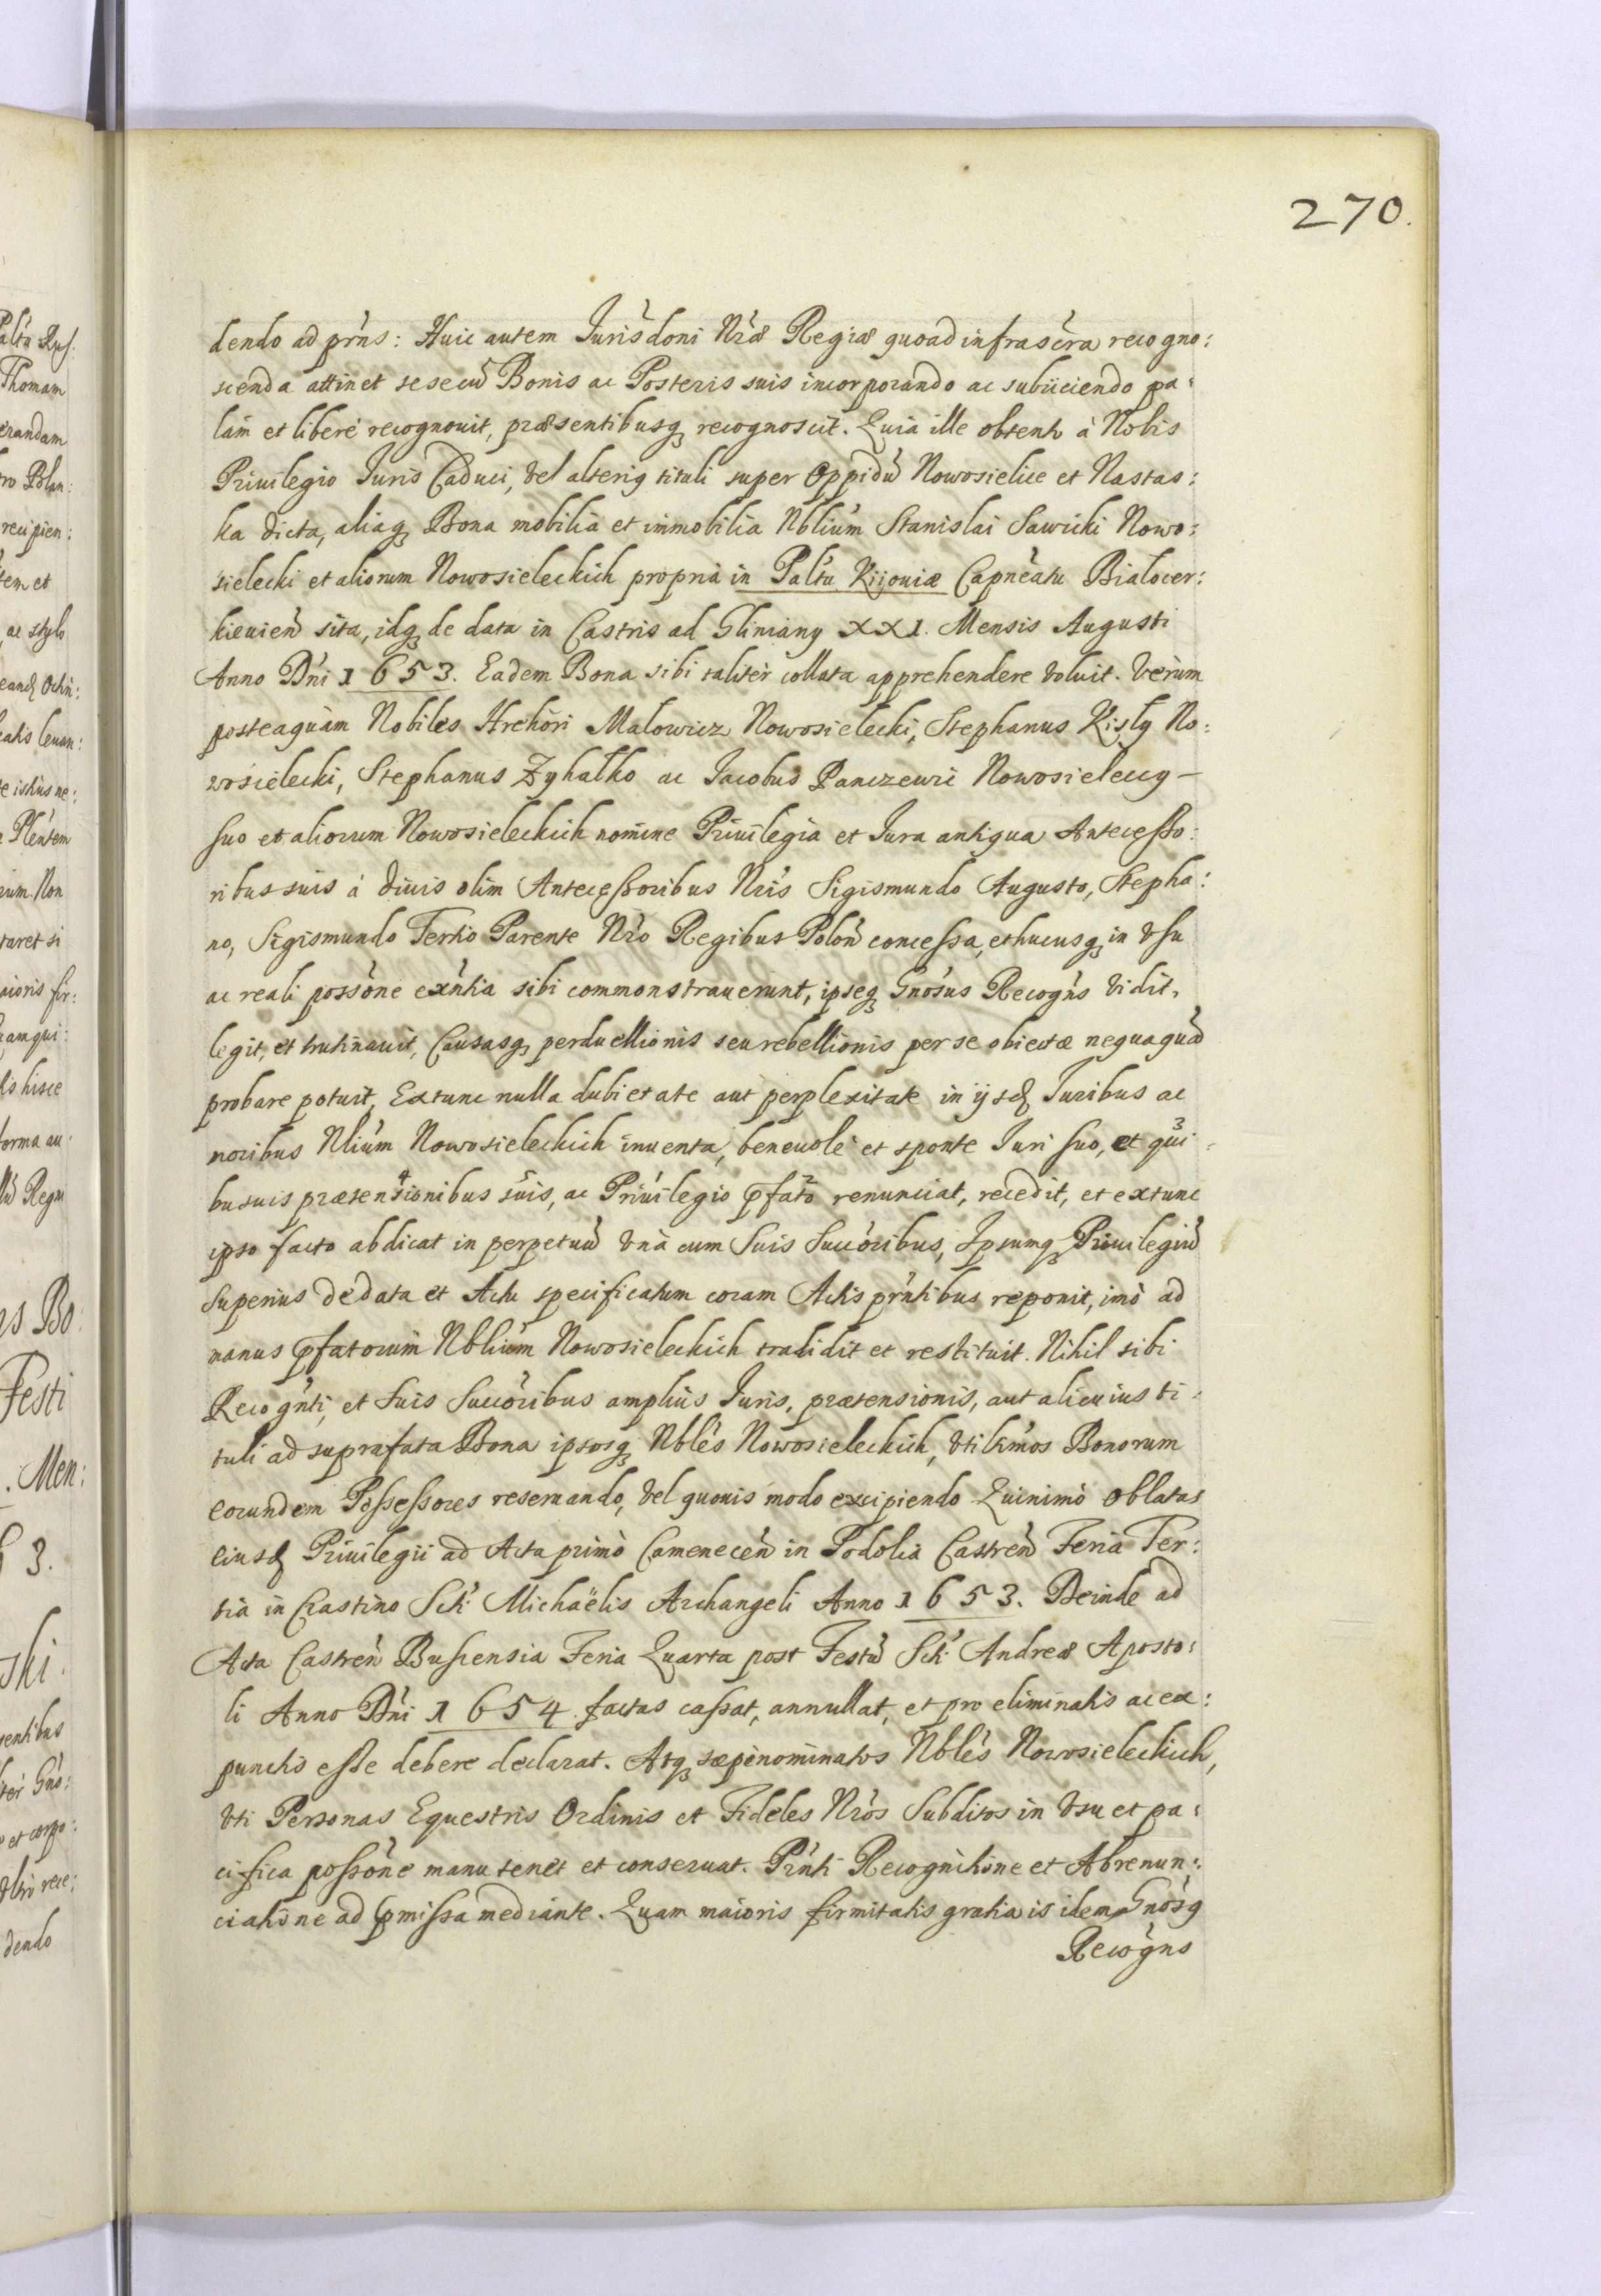 270.
dendo ad prns: Huic autem Jurisdoni Nræ Regiæ quoad infrascra recogno:
scenda attinet sese cũ Bonis ac Posteris suis incorporando ac subiiciendo pa:
lam et liberè recognouit, præsentibusq recognoscit. Quia ille obtento à Nobis
Priuilegio Juris Caduci, vel alterius tituli super Oppidũ Nowosielice et Nastas:
ka dicta, aliaq Bona mobilia et immobilia Nblium Stanislai Sawicki Nowo:
sielecki et aliorum Nowosieleckich propria in Paltu Kijouiæ Capneatu Bialocer:
kieuień sita, idq de data in Castris ad Gliniany XXI. Mensis Augusti
Anno Dni 1653. Eadem Bona sibi taliter collata apprehendere voluit. Verùm
posteaquàm Nobiles Hrehori Malowicz Nowosielecki, Stephanus Kisly No:
wosielecki, Stephanus Zyhałko ac Jacobus Panczewic Nowosieleccy –
suo et aliorum Nowosieleckich nomine Priuilegia et Jura antiqua Antecesso:
ribus suis à diuis olim Antecessoribus Nris Sigismundo Augusto, Stepha:
no, Sigismundo Tertio Parente Nro Regibus Polon concessa, et hucusq in vsu
ac reali possone exntia sibi commonstrauerunt, ipseq Gnosus Recogns vidit,
legit, et trutinauit, Causasq perduellionis seu rebellionis per se obiectæ nequaquã
probare potuit, Extunc nulla dubietate aut perplexitate in ijsd Juribus ac
noribus Nlium Nowosieleckich inuenta, beneuolè et sponte Juri suo, et qui:
busuis prætensionibus suis, ac Priuilegio pfato renunciat, recedit, et extunc
ipso facto abdicat in perpetuũ vnà cum suis Succoribus, Ipsumq Priuilegiũ
superius de data et Actu specificatum coram Actis prntibus reponit, imò ad
manus pfatorum Nblium Nowosieleckich tradidit et restituit. Nihil sibi
Recognti, et suis Succoribus amplius Juris, prætensionis, aut alicuius ti:
tuli ad suprafata Bona ipsosq Nbles Nowosieleckich, vti ltmos Bonorum
eorundem Possessores reseruando, vel quouis modo excipiendo Quinimò oblatas
eiusd Priuilegii ad Acta primò Camenecen in Podolia Castren Feria Ter:
tia in Crastino Scti Michaëlis Archangeli Anno 1653. Deinde ad
Acta Castren Buscensia Feria Quarta post Festũ Scti Andreæ Aposto:
li Anno Dni 1654. factas cassat, annullat, et pro eliminatis ac ex:
punctis esse debere declarat. Atq sæpenominatos Nbles Nowosieleckich,
vti Personas Equestris Ordinis et Fideles Nros Subditos in vsu et pa:
cifica possone manutenet et conseruat. Prnti Recognitione et Abrenun:
ciatione ad pmissa mediante. Quam maioris firmitatis gratia is idem Gnosus
Recogns